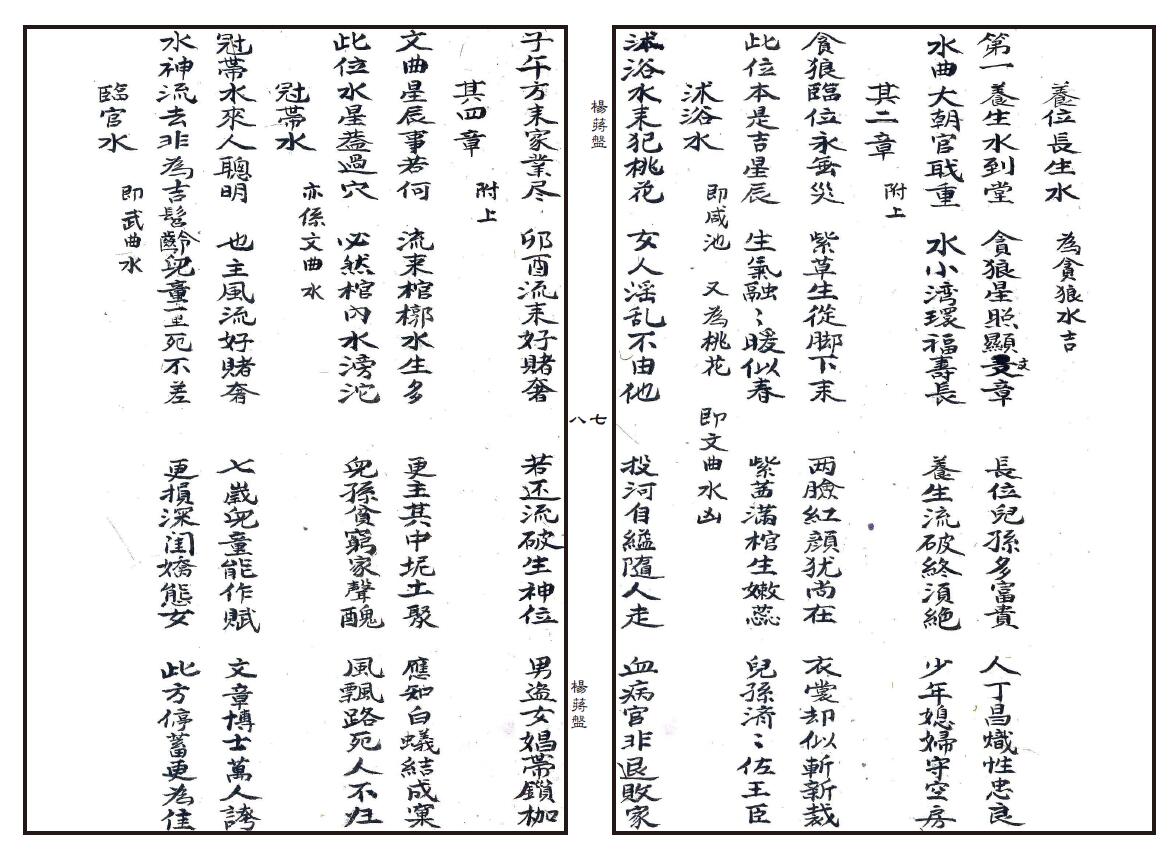 養位長生水　為貪狼水吉
第一養生水到堂　貪狼星照顯文章　長位兒孫多富貴　人丁昌熾性忠良
水曲大朝官戢重　水小湾環福壽長　養生流破終須絶　少年媳婦守空房
其二章　附上
貪狼臨位永無災　紫草生從脚下来　两臉紅顔犹尚在　衣裳却似斬新裁
此位本是吉星辰　生氣融〻暖似春　紫茜滿棺生嫩蕊　兒孫濟〻佐王臣
沐浴水　即咸池　又為桃花　即文曲水凶
沐浴水来犯桃花　女人淫乱不由他　投河自縊隨人走　血病官非退敗家
楊蔣盤
八七
楊蔣盤
子午方来家業尽　卯酉流来好賭奢　若还流破生神位　男盗女娼帯鎖枷
其四章　附上
文曲星辰事若何　流来棺槨水生多　更主其中坭土聚　應知白蟻結成窠
此位水星蓋過穴　必然棺內水滂沱　兒孫貧窮家聲醜　風飄路死人不归
冠帯水　亦係文曲水
冠帯水來人聰明　也主風流好賭奢　七歲兒童能作賦　文章博士萬人誇
水神流去非為吉　髫齡兒童死不差　更損深闺嬌態女　此方停蓄更為佳
臨官水　即武曲水